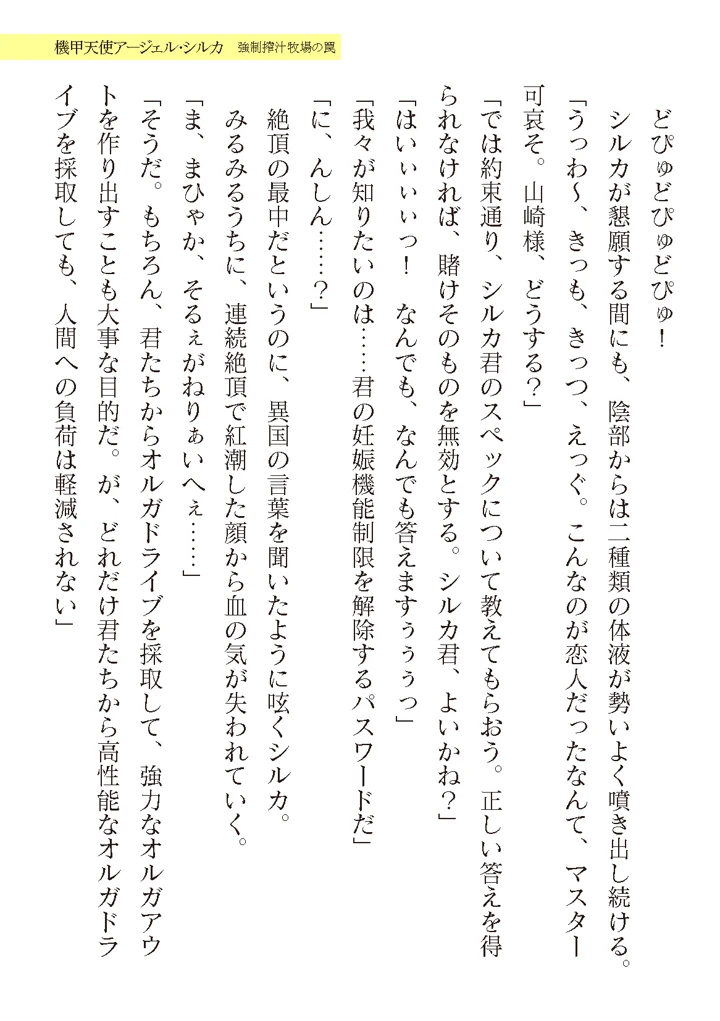 機甲天使アージェル・シルカ　強制搾汁牧場の罠
どぴゅどぴゅどぴゅ！
シルカが懇願する間にも、陰部からは二種類の体液が勢いよく噴き出し続ける。
「うっわ～、きっも、きっつ、えっぐ。こんなのが恋人だったなんて、マスター
可哀そ。山崎様、どうする？」
「では約束通り、シルカ君のスペックについて教えてもらおう。正しい答えを得
られなければ、賭けそのものを無効とする。シルカ君、よいかね？」
「はいぃぃぃっ！　なんでも、なんでも答えますぅぅぅっ」
「我々が知りたいのは……君の妊娠機能制限を解除するパスワードだ」
「に、んしん……？」
絶頂の最中だというのに、異国の言葉を聞いたように呟くシルカ。
みるみるうちに、連続絶頂で紅潮した顔から血の気が失われていく。
「ま、まひゃか、そるぇがねりぁいへぇ……」
「そうだ。もちろん、君たちからオルガドライブを採取して、強力なオルガアウ
トを作り出すことも大事な目的だ。が、どれだけ君たちから高性能なオルガドラ
イブを採取しても、人間への負荷は軽減されない」